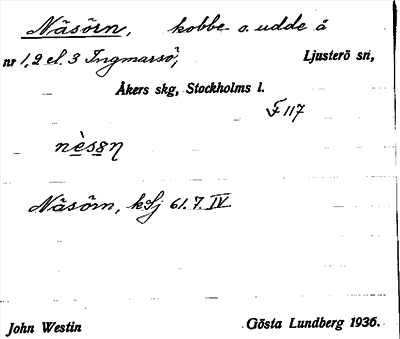 Näsörn, kobbe o. udde å
nr 1, 2 el. 3 Ingmarsö, Ljusterö sn,
Åkers skg, Stockholms l.
F 117
nèsɞƞ
Näsörn, kSj 61.7.IV
John Westin Gösta Lundberg 1936.